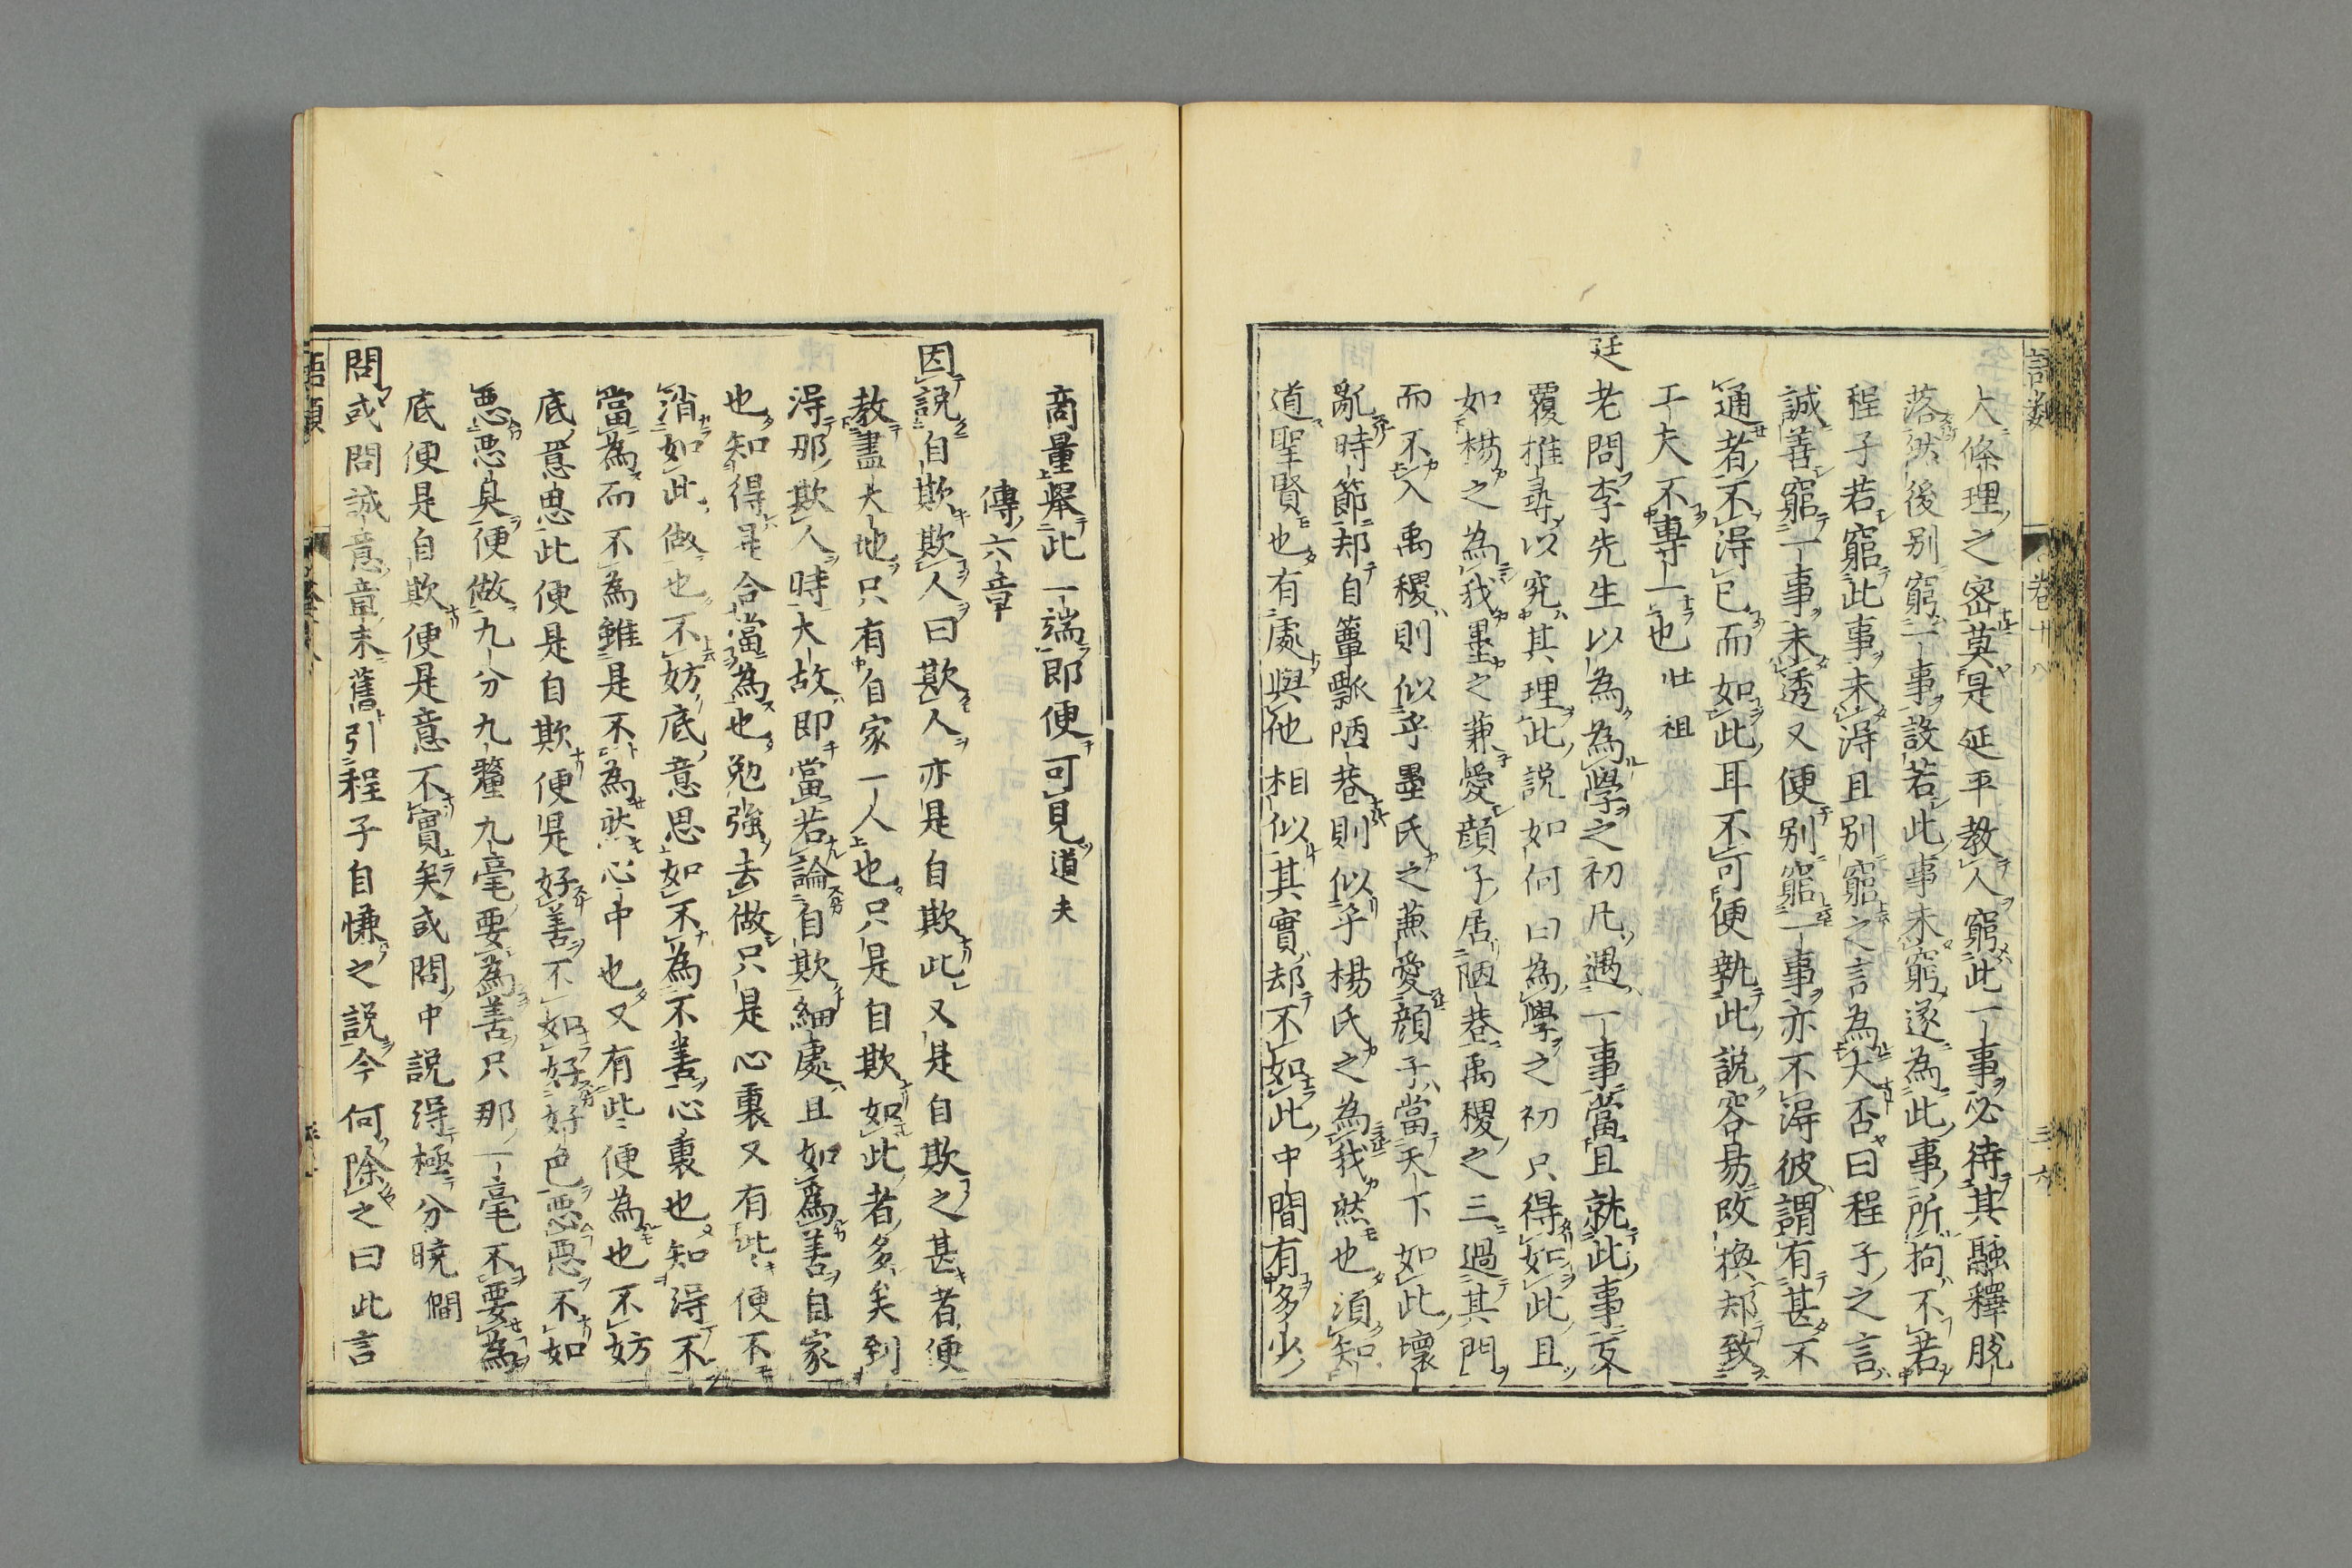 語類
卷十八
三六
大條理之密莫是延平教人窮此一事必待其融釋脫
落然後別窮一事設若此事未窮遂為此事所拘不若
程子若窮此事未得且別窮之言為大否曰程子之言
誠善窮一事未透又便別窮一事亦不得彼謂有甚不
通者不得已而如此耳不可便執此說容易改換却致
工夫不專一也壯祖
廷老問李先生以為為學之初凡遇一事當且就此事反
覆推尋以究其理此說如何曰為學之初只得如此且
如楊之為我墨之兼愛顔子居陋巷禹稷之三過其門
而不入禹稷則似乎墨氏之兼愛顔子當天下如此壞
亂時節却自簞瓢陋巷則似乎楊氏之為我然也須知
道聖賢也有處與他相似其實却不如此中間有多少
商量舉此一端即便可見道夫
傳六章
因說自欺欺人曰欺人亦是自欺此又是自欺之甚者便
教盡大地只有自家一人也只是自欺如此者多矣到
得那欺人時大故即當若論自欺細處且如為善自家
也知得是合當為也勉強去做只是心裏又有些便不
消如此做也不妨底意思如不為不善心裏也知得不
當為而不為雖是不為然心中也又有些便為也不妨
底意思此便是自欺便是好善不如好好色惡惡不如
惡惡臭便做九分九釐九毫要為善只那一毫不要為
底便是自欺便是意不實矣或問中說得極分曉僩
問或問誠意章末舊引程子自慊之說今何除之曰此言
語類